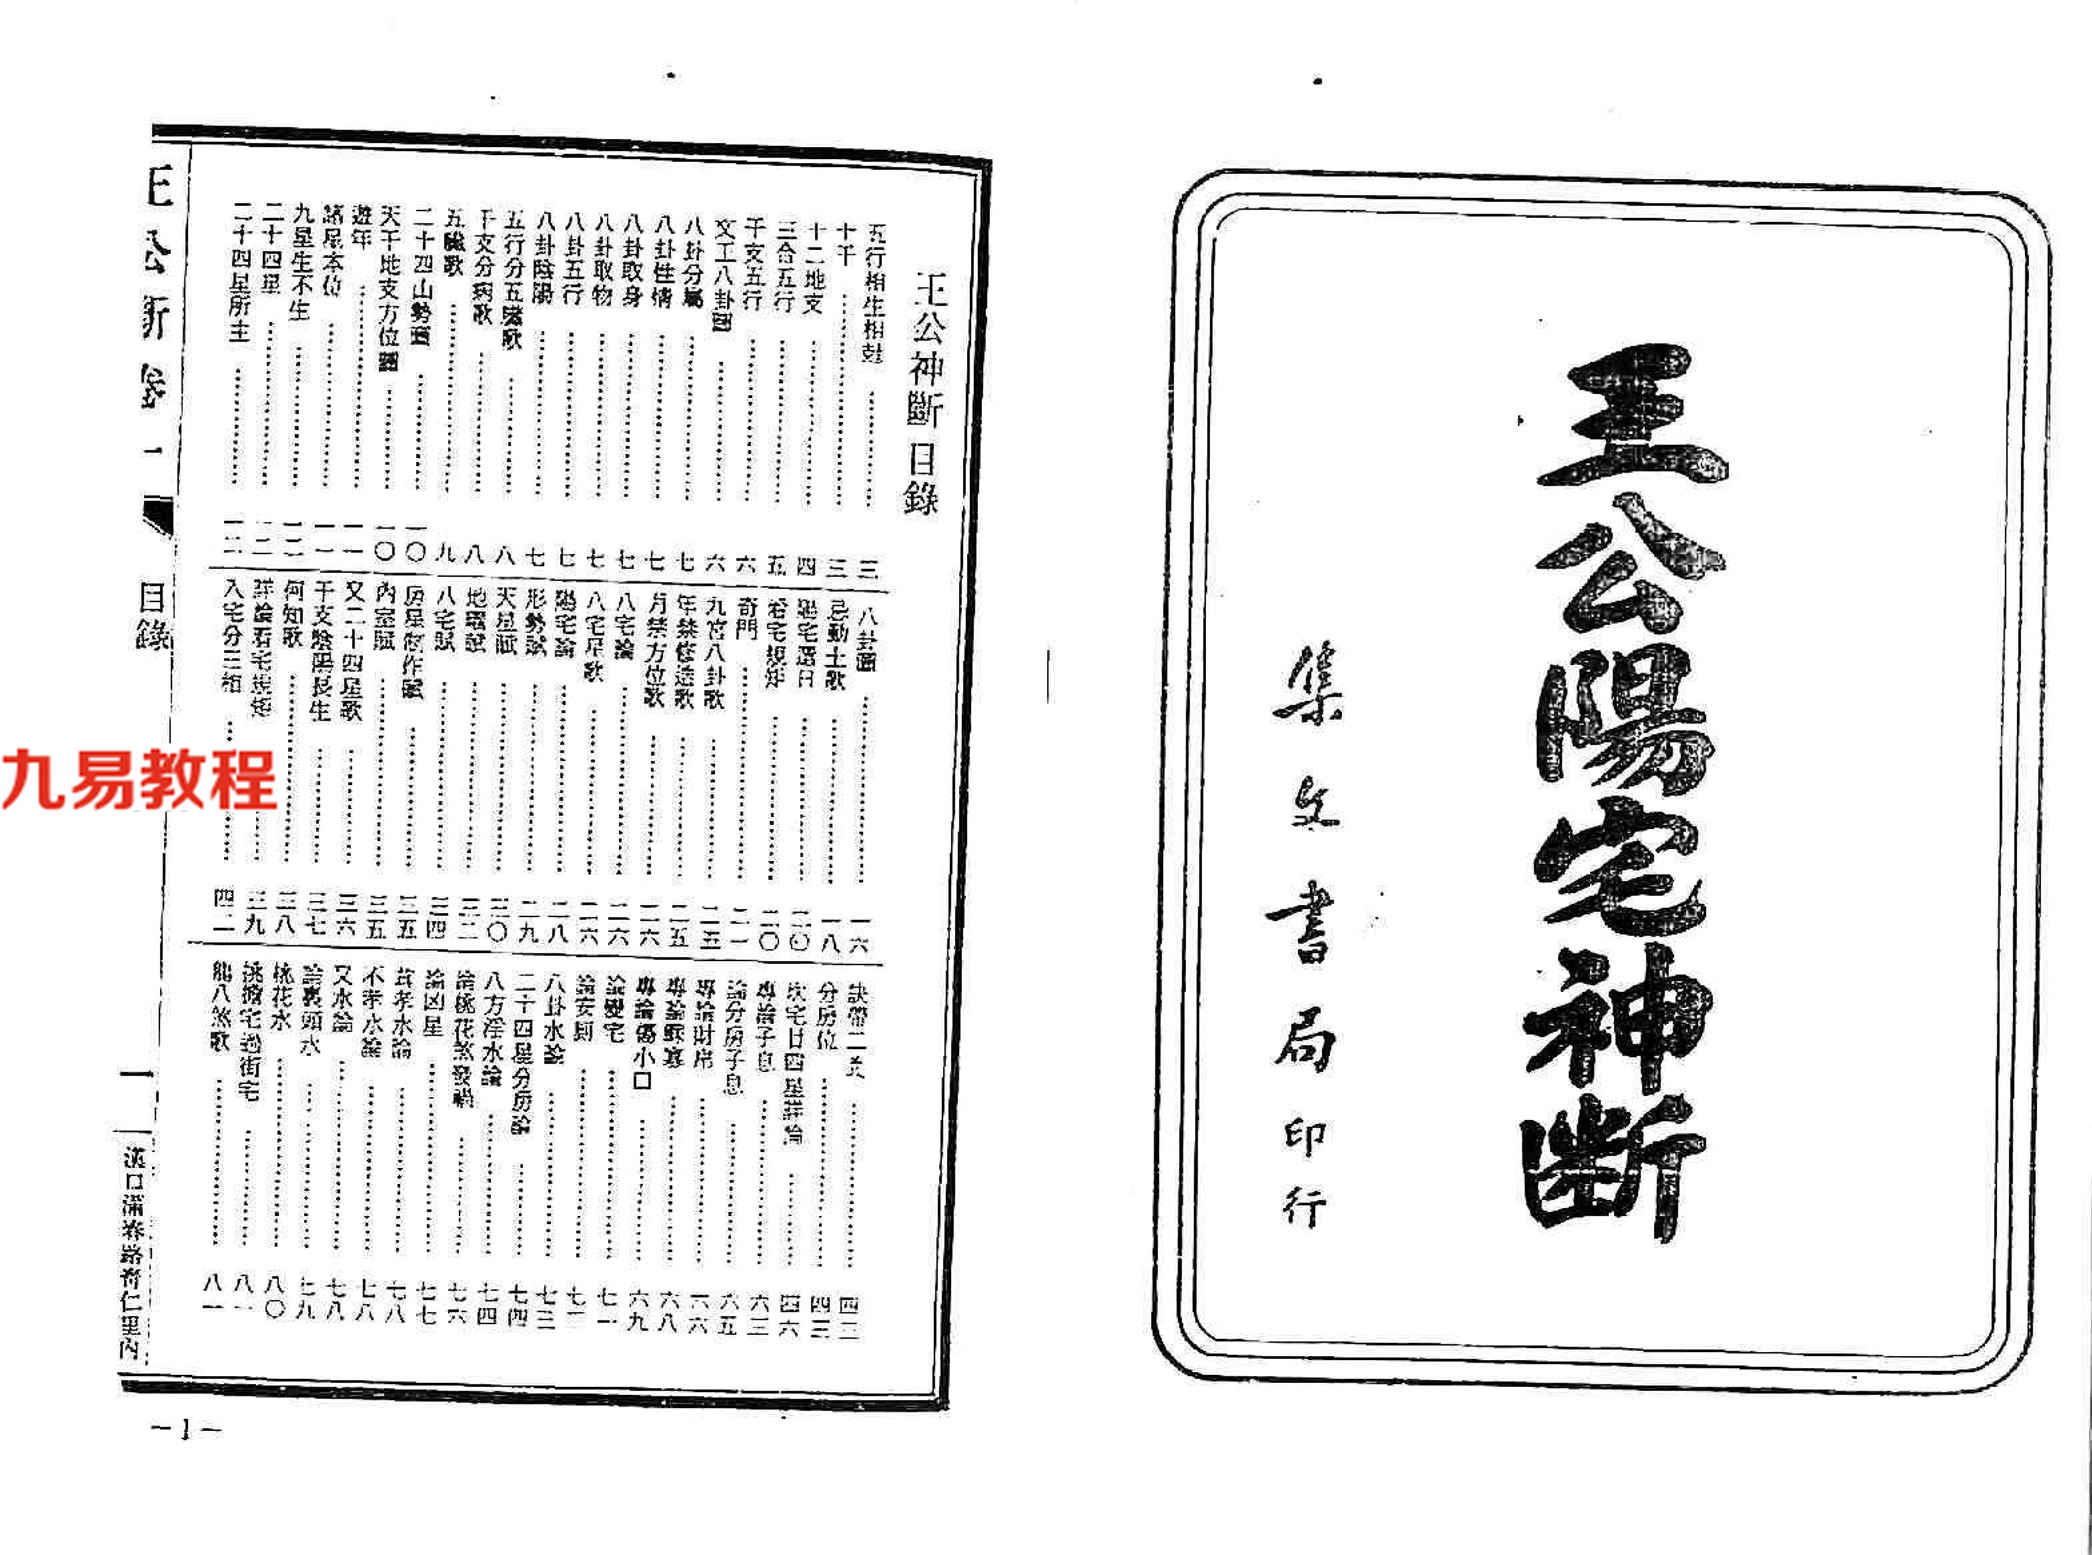 王公陽宅神斷
集文書局印行
王公神斷目錄
五行相生相尅……三
十干……三
十二地支……四
三合五行……五
干支五行……六
文王八卦圖……六
八卦分屬……七
八卦性情……七
八卦取身……七
八卦取物……七
八卦五行……七
八卦陰陽……七
五行分五臟歌……八
干支分病歌……八
五臟歌……九
二十四山勢圖……一〇
天干地支方位圖……一〇
遊年……一一
諸星本位……一一
九星生不生……一二
二十四星……一二
二十四星所主……一二
八卦圖……一六
忌動土歌……一八
陽宅選日……二〇
看宅規矩……二〇
奇門……二一
九宮八卦歌……二五
年禁修造歌……二五
月禁方位歌……二六
八宅論……二六
八宅尽歌……二六
陽宅論……二八
形勢賦……二九
天星賦……三〇
地電賦……三二
八宅賦……三四
房星制作賦……三五
內室賦……三五
又二十四星歌……三六
干支陰陽長生……三七
何知歌……三八
詳論看宅規矩……三九
入宅分三箱……四二
訣帶二文……四三
分房位……四三
坎宅廿四星詳論……四六
專論子息……六三
論分房子息……六五
專論財帛……六六
專論壽寡……六八
專論傷小口……六九
論變宅……七一
論安廁……七二
八卦水論……七三
二十四星分房論……七四
八方淫水論……七四
論桃花煞發禍……七六
論凶星……七七
貧孝水論……七八
不孝水論……七八
又水論……七八
論裏頭水……七九
桃花水……八〇
挑擔宅過街宅……八一
龍八煞歌……八一
王公斷卷一
目錄
一
漢口滿春路育仁里內
九易教程
—1—